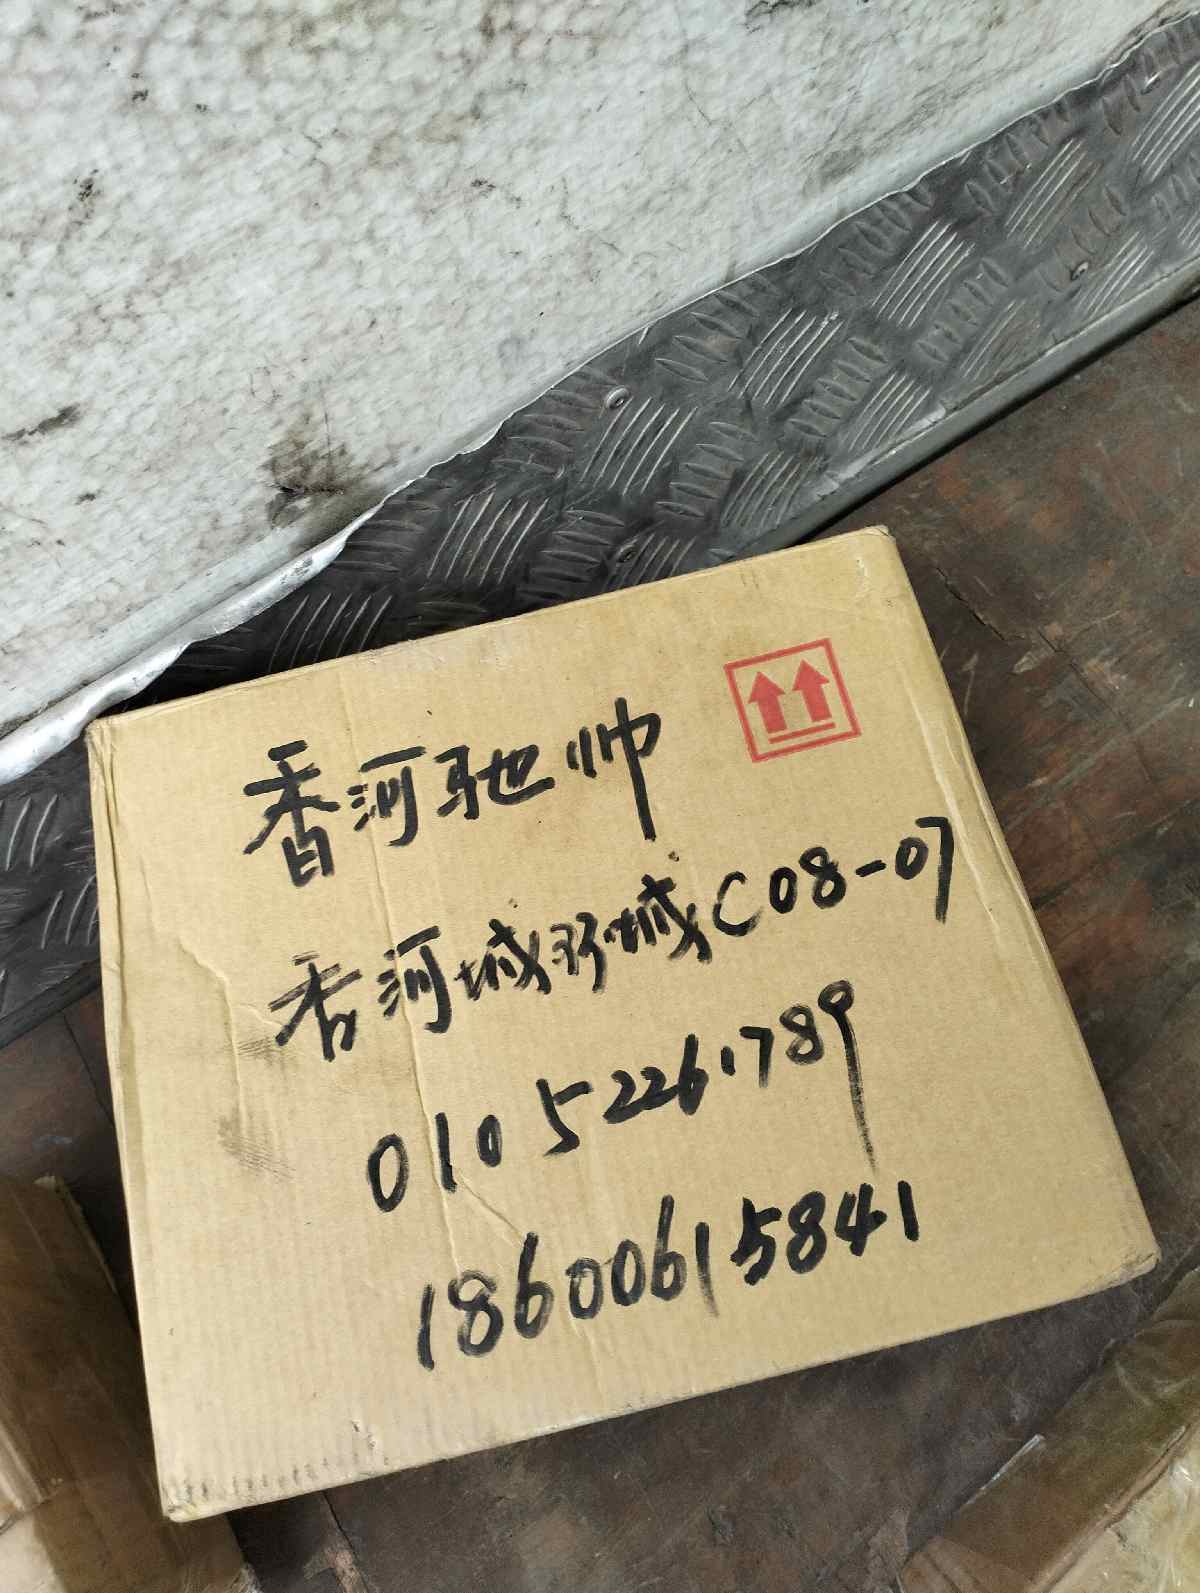 香河驰帅
香河城环城C08-07
010 52261789
18600615841